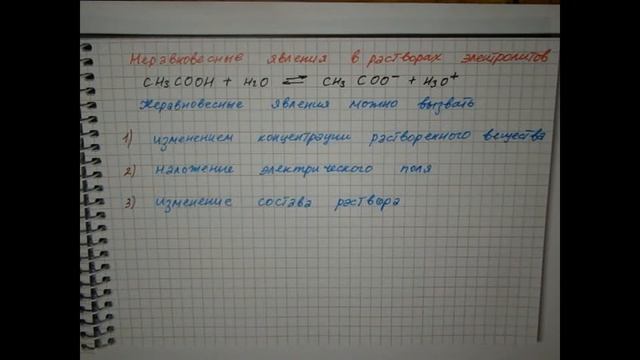 Неравновесные явления в растворах электролитов
CH3COOH + H2O ⇌ CH3 COO⁻ + H3O⁺
Неравновесные явления можно вызвать
1) изменением концентрации растворенного вещества
2) наложение электрического поля
3) изменение состава раствора